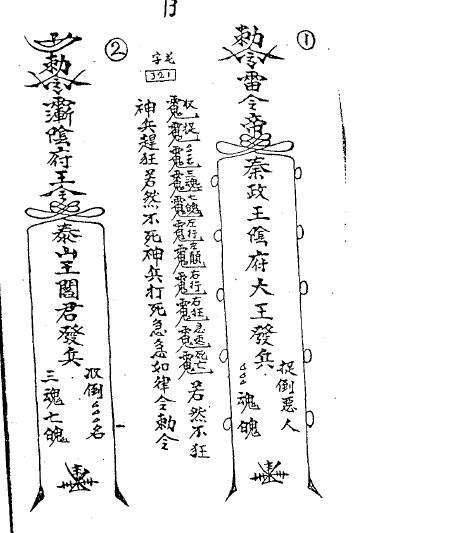 13
①
勅令雷令帝
秦政王陰府大王發兵
捉倒惡人
魂魄
字花
321
收捉
三魂七魄左行左顛右行右狂急速死亡
若然不狂
神兵趕狂若然不死神兵打死急急如律令勅令
②
勅令
陰府王令
泰山王閻君發兵
收倒
名
三魂七魄